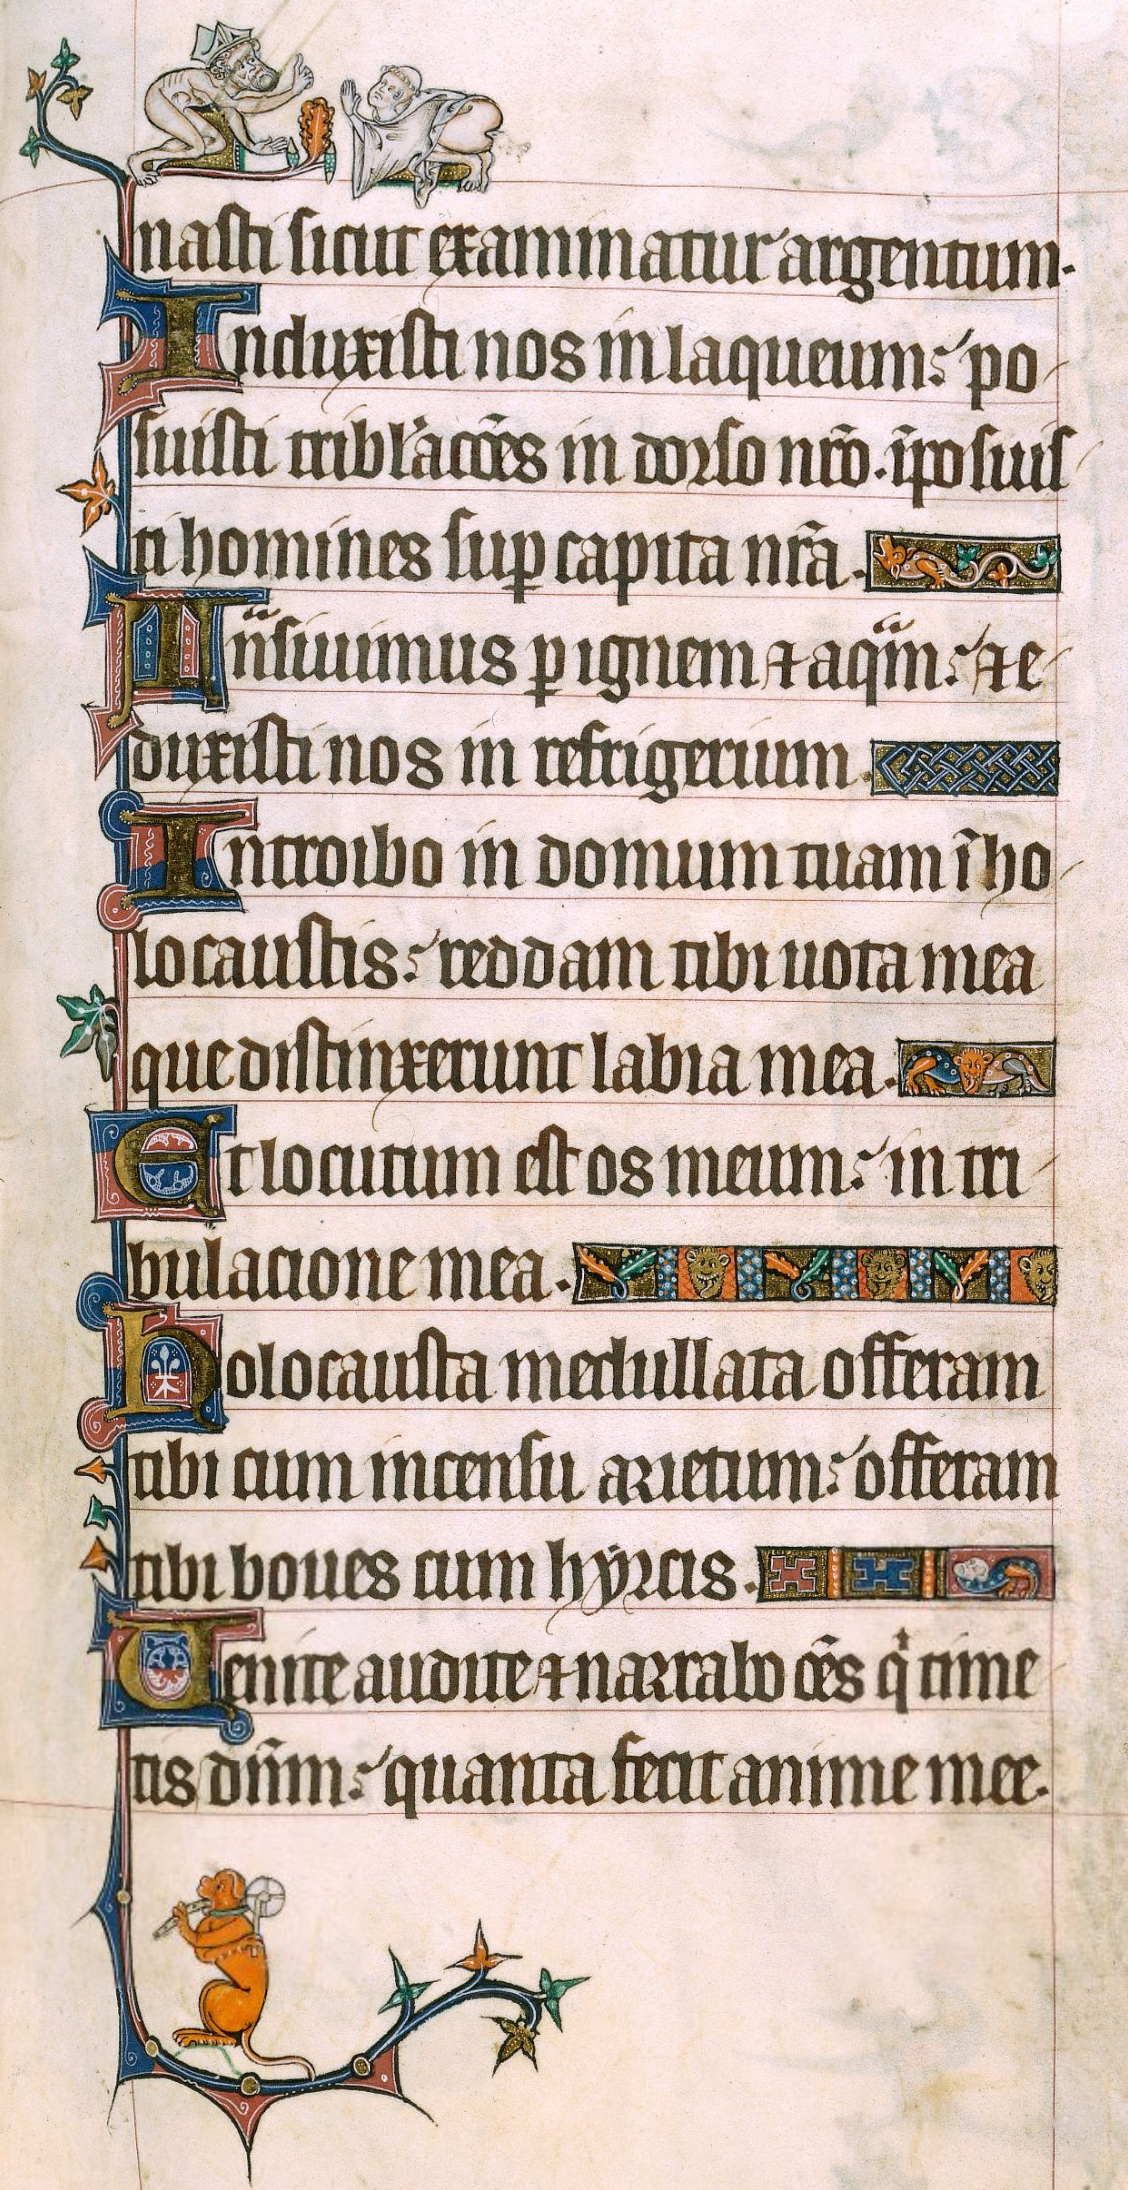 nasti sicut examinatur argentum.
Induxisti nos in laqueum: po
suisti tribl'acões in dorso nr̃o. īposuis
ti homines sup capita nr̃a.
Tñsiuimus p ignem ⁊ aqͣm: ⁊ e
duxisti nos in refrigerium.
Introibo in domum tuam ī ho
locaustis: reddam tibi uota mea
que distinxerunt labia mea.
Et locutum est os meum: in tri
bulacione mea.
Holocausta medullata offeram
tibi cum incensu arietum: offeram
tibi boues cum hẏrcis.
Uenite audite ⁊ narrabo õēs qͥ time
tis dñm: quanta fecit anime mee.